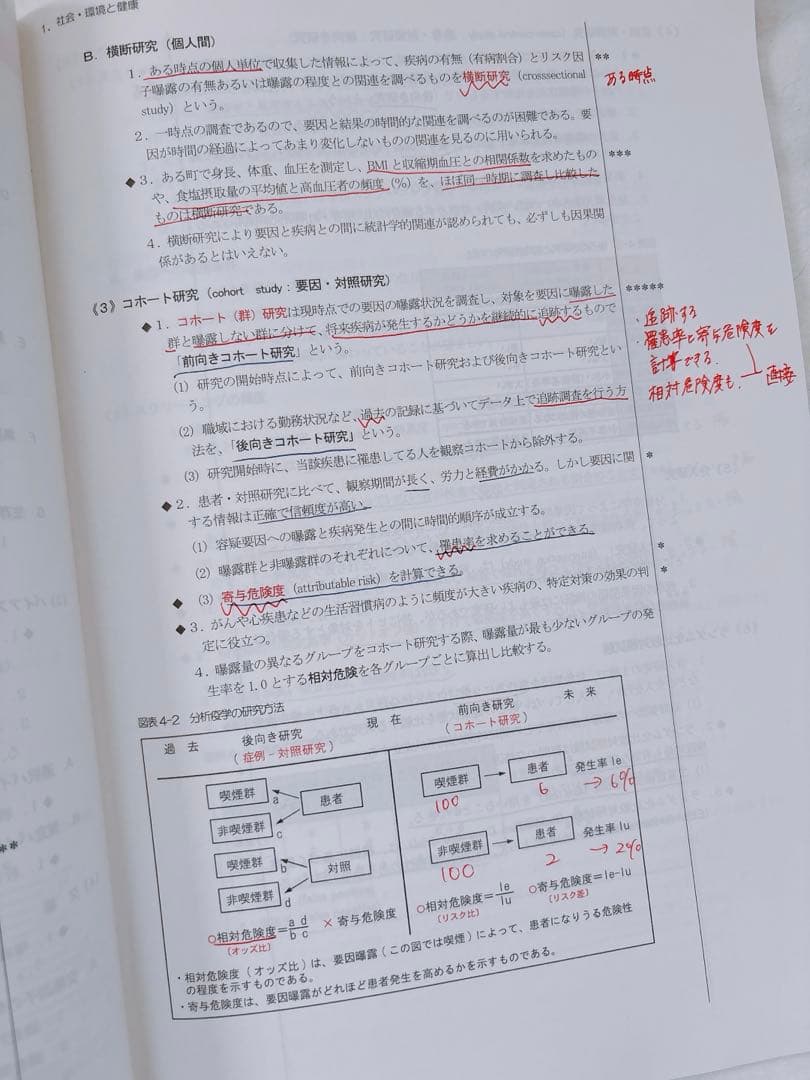 1．社会・環境と健康
B．横断研究（個人間）
1．ある時点の個人単位で収集した情報によって、疾病の有無（有病割合）とリスク因
子曝露の有無あるいは曝露の程度との関連を調べるものを横断研究（crosssectional
study）という。
**
ある時点
2．一時点の調査であるので、要因と結果の時間的な関連を調べるのが困難である。要
因が時間の経過によってあまり変化しないものの関連を見るのに用いられる。
◆3．ある町で身長、体重、血圧を測定し、BMIと収縮期血圧との相関係数を求めたもの
や、食塩摂取量の平均値と高血圧者の頻度（%）を、ほぼ同一時期に調査し比較した
ものは横断研究である。
***
4．横断研究により要因と疾病との間に統計学的関連が認められても、必ずしも因果関
係があるとはいえない。
《3》コホート研究（cohort study：要因・対照研究）
◆1．コホート（群）研究は現時点での要因の曝露状況を調査し、対象を要因に曝露した
群と曝露しない群に分けて、将来疾病が発生するかどうかを継続的に追跡するもので
「前向きコホート研究」という。
*****
・追跡する
・罹患率と寄与危険度を
計算できる.
相対危険度も.
直接
(1) 研究の開始時点によって、前向きコホート研究および後向きコホート研究とい
う。
(2) 職域における勤務状況など、過去の記録に基づいてデータ上で追跡調査を行う方
法を、「後向きコホート研究」という。
(3) 研究開始時に、当該疾患に罹患してる人を観察コホートから除外する。
◆2．患者・対照研究に比べて、観察期間が長く、労力と経費がかかる。しかし要因に関
する情報は正確で信頼度が高い。
*
(1) 容疑要因への曝露と疾病発生との間に時間的順序が成立する。
(2) 曝露群と非曝露群のそれぞれについて、罹患率を求めることができる。
*
◆ (3) 寄与危険度（attributable risk）を計算できる。
*
◆3．がんや心疾患などの生活習慣病のように頻度が大きい疾病の、特定対策の効果の判
定に役立つ。
4．曝露量の異なるグループをコホート研究する際、曝露量が最も少ないグループの発
生率を1.0とする相対危険を各グループごとに算出し比較する。
図表4-2 分析疫学の研究方法
過 去
後向き研究
（症例－対照研究）
現 在
前向き研究
（コホート研究）
未 来
喫煙群
a
患者
非喫煙群
c
喫煙群
b
対照
非喫煙群
d
○相対危険度=a d/b c
（オッズ比）
× 寄与危険度
喫煙群
100
患者
6
発生率 Ie
→6%
非喫煙群
100
患者
2
発生率 Iu
→2%
○相対危険度=Ie/Iu
（リスク比）
○寄与危険度=Ie-Iu
（リスク差）
・相対危険度（オッズ比）は、要因曝露（この図では喫煙）によって、患者になりうる危険性
の程度を示すものである。
・寄与危険度は、要因曝露がどれほど患者発生を高めるかを示すものである。
**